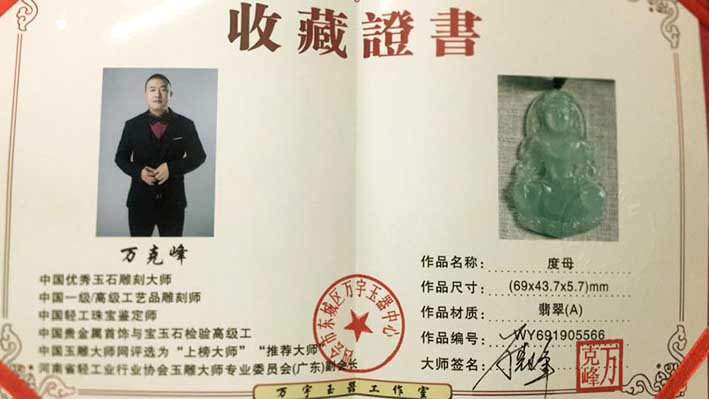 收藏證書
万克峰
中国优秀玉石雕刻大师
中国一级/高级工艺品雕刻师
中国轻工珠宝鉴定师
中国贵金属首饰与宝玉石检验高级工
中国玉雕大师网评选为“上榜大师”“推荐大师”
河南省轻工业行业协会玉雕大师专业委员会(广东)副会长
作品名称: 度母
作品尺寸: (69x43.7x5.7)mm
作品材质: 翡翠(A)
作品编号: WY691905566
大师签名:
万克峰
市东城区万宇玉器中心
万宇玉器工作室